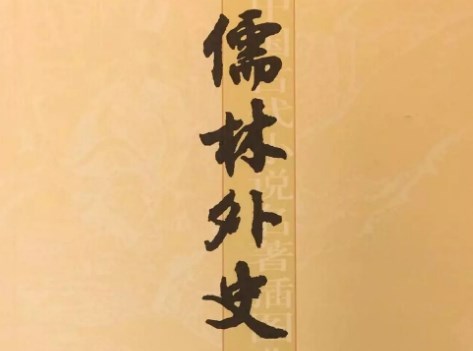 儒林外史
中国古代小说名著插图